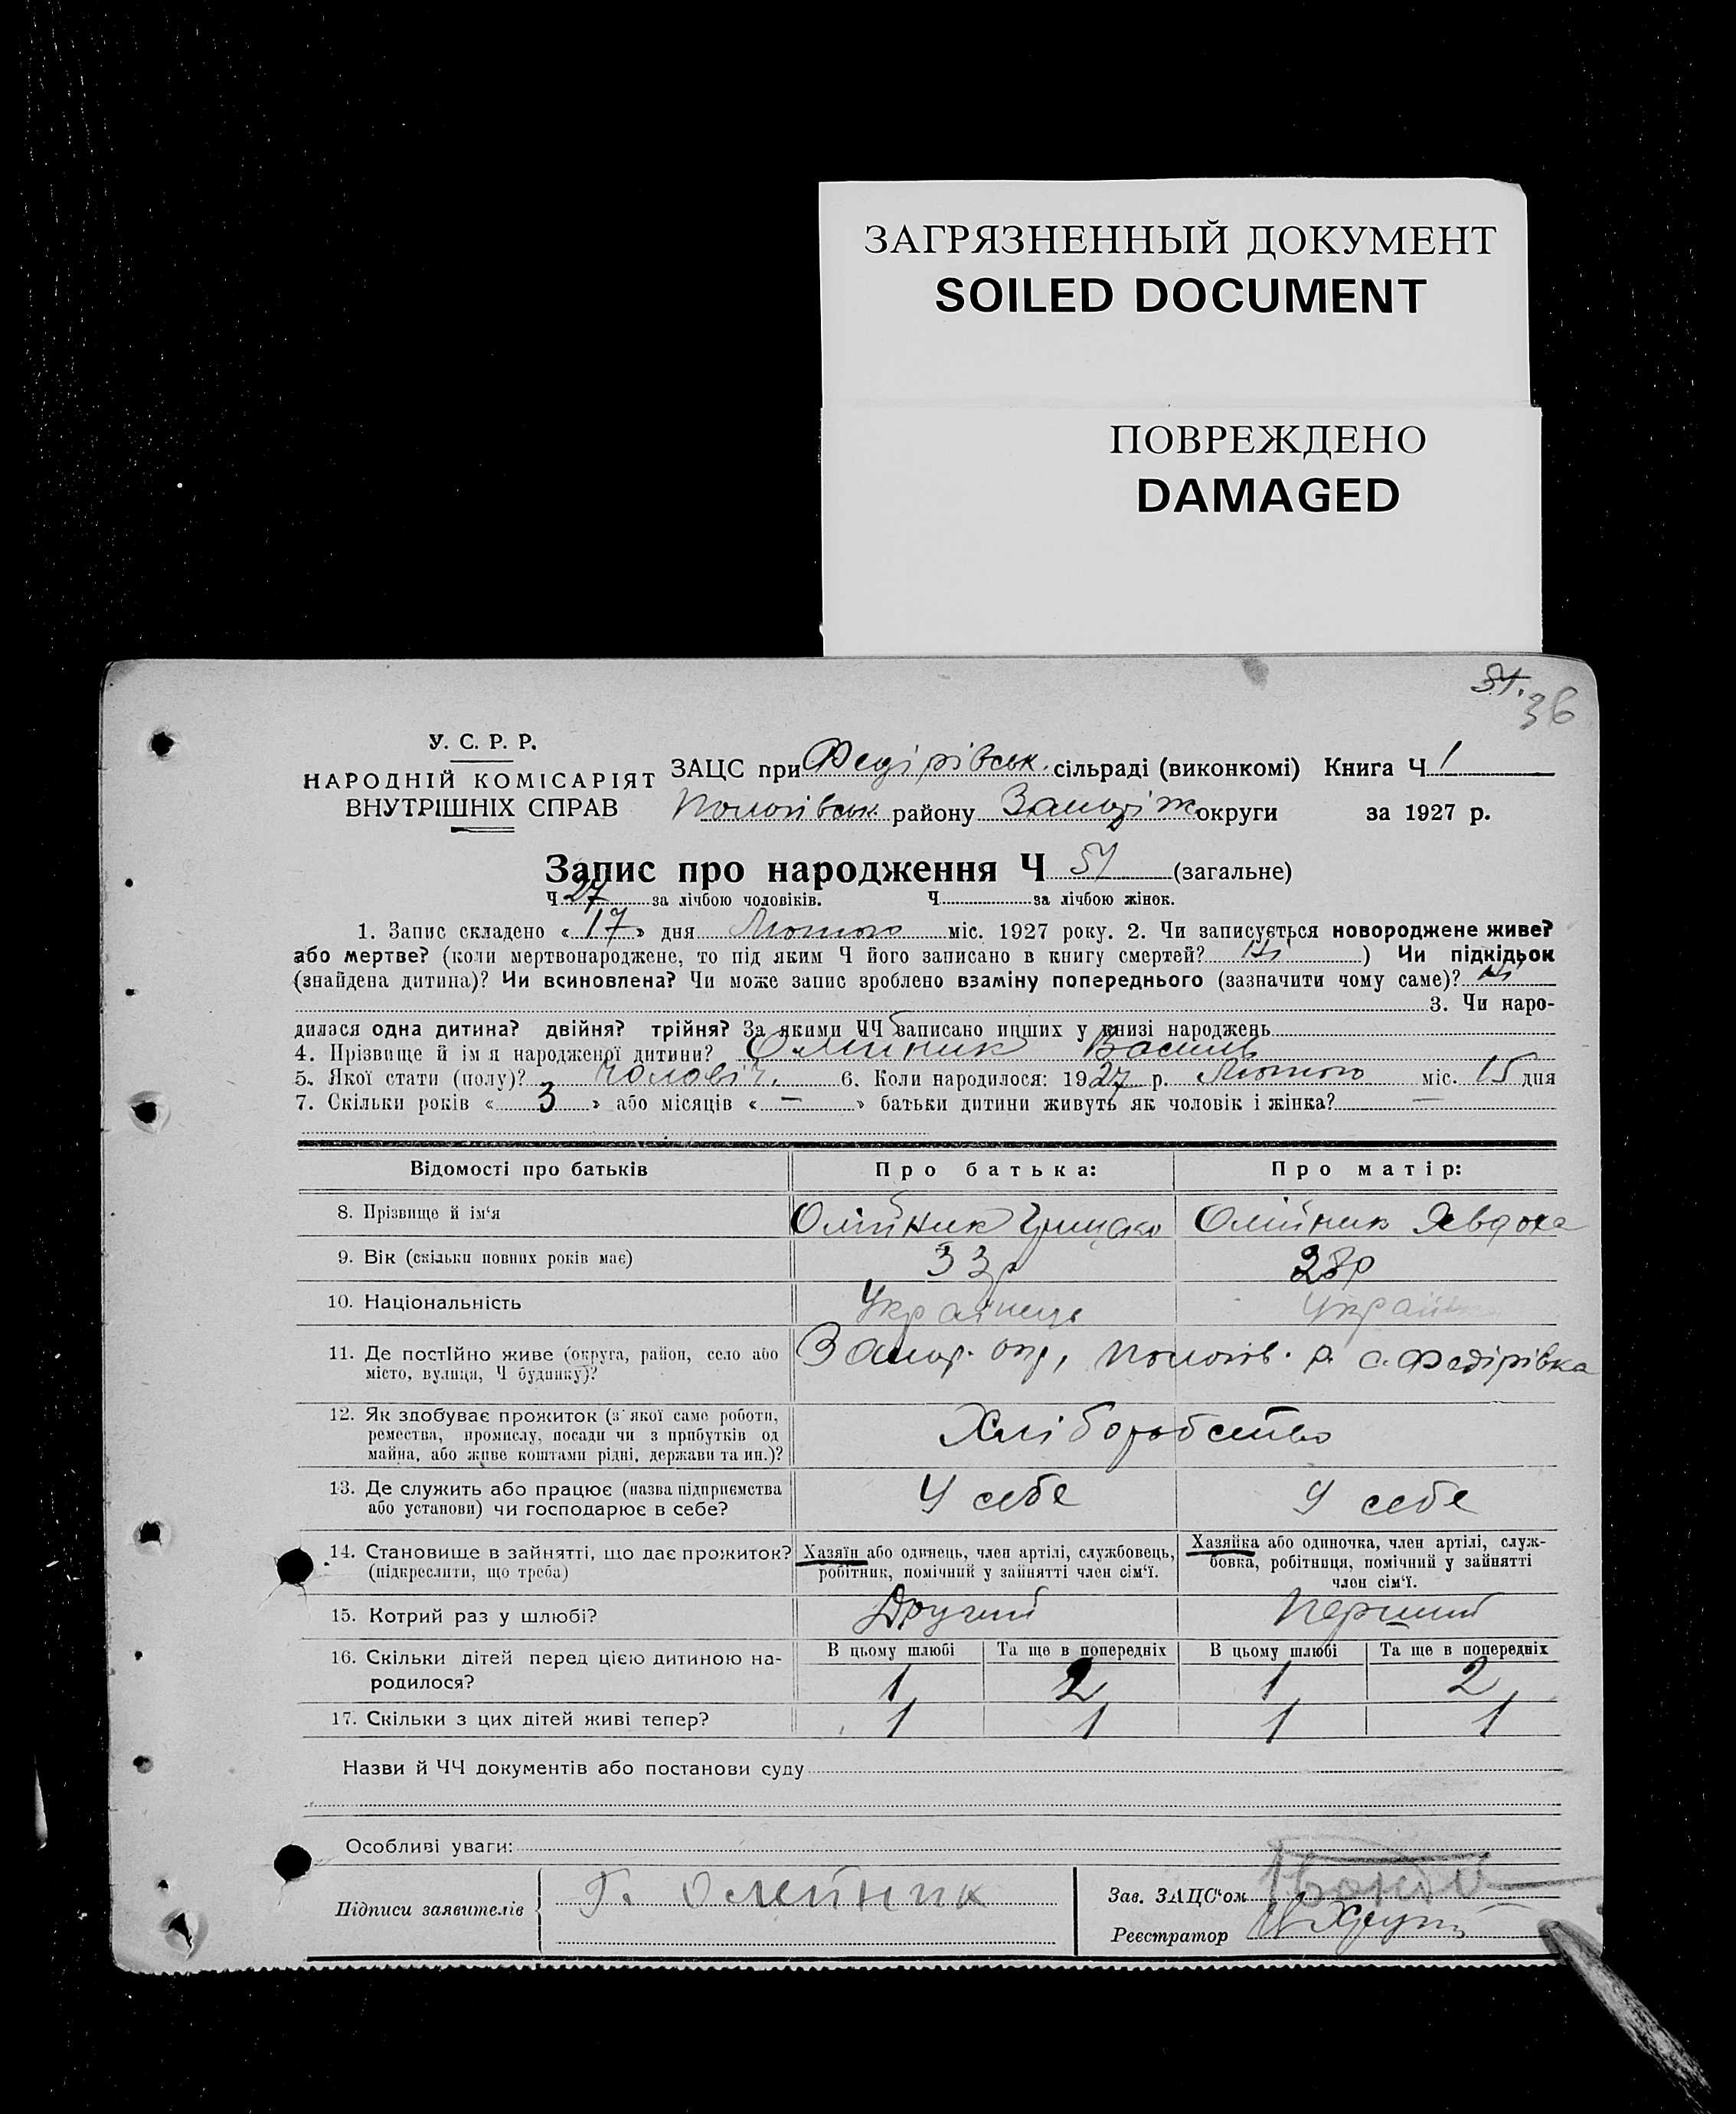 ЗАГРЯЗНЕННЫЙ ДОКУМЕНТ
SOILED DOCUMENT
ПОВРЕЖДЕНО
DAMAGED
36
У. С. Р. Р.
НАРОДНІЙ КОМІСАРІЯТ
ВНУТРІШНІХ СПРАВ
ЗАЦС при Федірівськ. сільраді (виконкомі) Книга Ч 1
Пологівськ. району Запоріж округи за 1927 р.
Запис про народження Ч 57 (загальне)
Ч 27 за лічбою чоловіків. Ч за лічбою жінок.
1. Запис складено «17» дня Лютого міс. 1927 року. 2. Чи записується новороджене живе?
або мертве? (коли мертвонароджене, то під яким Ч його записано в книгу смертей? Ні ) Чи підкідьок
(знайдена дитина)? Чи всиновлена? Чи може запис зроблено взаміну попереднього (зазначити чому саме)? Ні
3. Чи наро-
дилася одна дитина? двійня? трійня? За якими ЧЧ записано инших у книзі народжень
4. Прізвище й імя народженої дитини? Олійник Василь
5. Якої стати (полу)? чоловіч. 6. Коли народилося: 1927 р. Лютого міс. 15 дня
7. Скільки років « 3 » або місяців « — » батьки дитини живуть як чоловік і жінка? —
Відомості про батьків Про батька: Про матір:
8. Прізвище й ім‘я Олійник Грицько Олійник Явдоха
9. Вік (скільки повних років має) 33р 28р
10. Національність Українець Українк
11. Де постійно живе (округа, район, село або
місто, вулиця, Ч будинку)? Запор. окр, Пологів. р. с. Федірівка
12. Як здобуває прожиток (з якої саме роботи,
ремества, промислу, посади чи з прибутків од
майна, або живе коштами рідні, держави та ин.)? Хліборобство
13. Де служить або працює (назва підприємства
або установи) чи господарює в себе? У себе У себе
14. Становище в зайнятті, що дає прожиток?
(підкреслити, що треба)
Хазяїн або одинець, член артілі, службовець,
робітник, помічний у зайнятті член сім‘ї.
Хазяйка або одиночка, член артілі, служ-
бовка, робітниця, помічний у зайнятті
член сім‘ї.
15. Котрий раз у шлюбі? Другий Перший
В цьому шлюбі Та ще в попередніх В цьому шлюбі Та ще в попередніх
16. Скільки дітей перед цією дитиною на-
родилося? 1 2 1 2
17. Скільки з цих дітей живі тепер? 1 1 1 1
Назви й ЧЧ документів або постанови суду
Особливі уваги:
Підписи заявителів Г. Олейник
Зав. ЗАЦС‘ом
Реєстратор